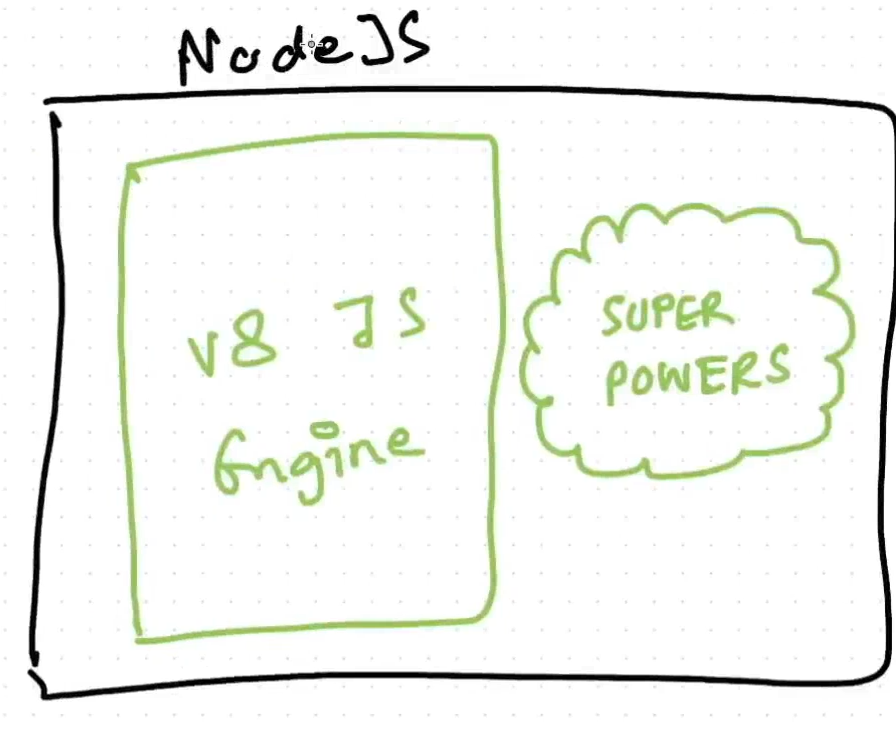 NodeJS
V8 JS
Engine
SUPER
POWERS